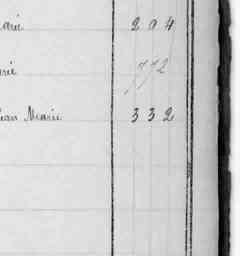 arie 294
rie 772
ean Marie 332